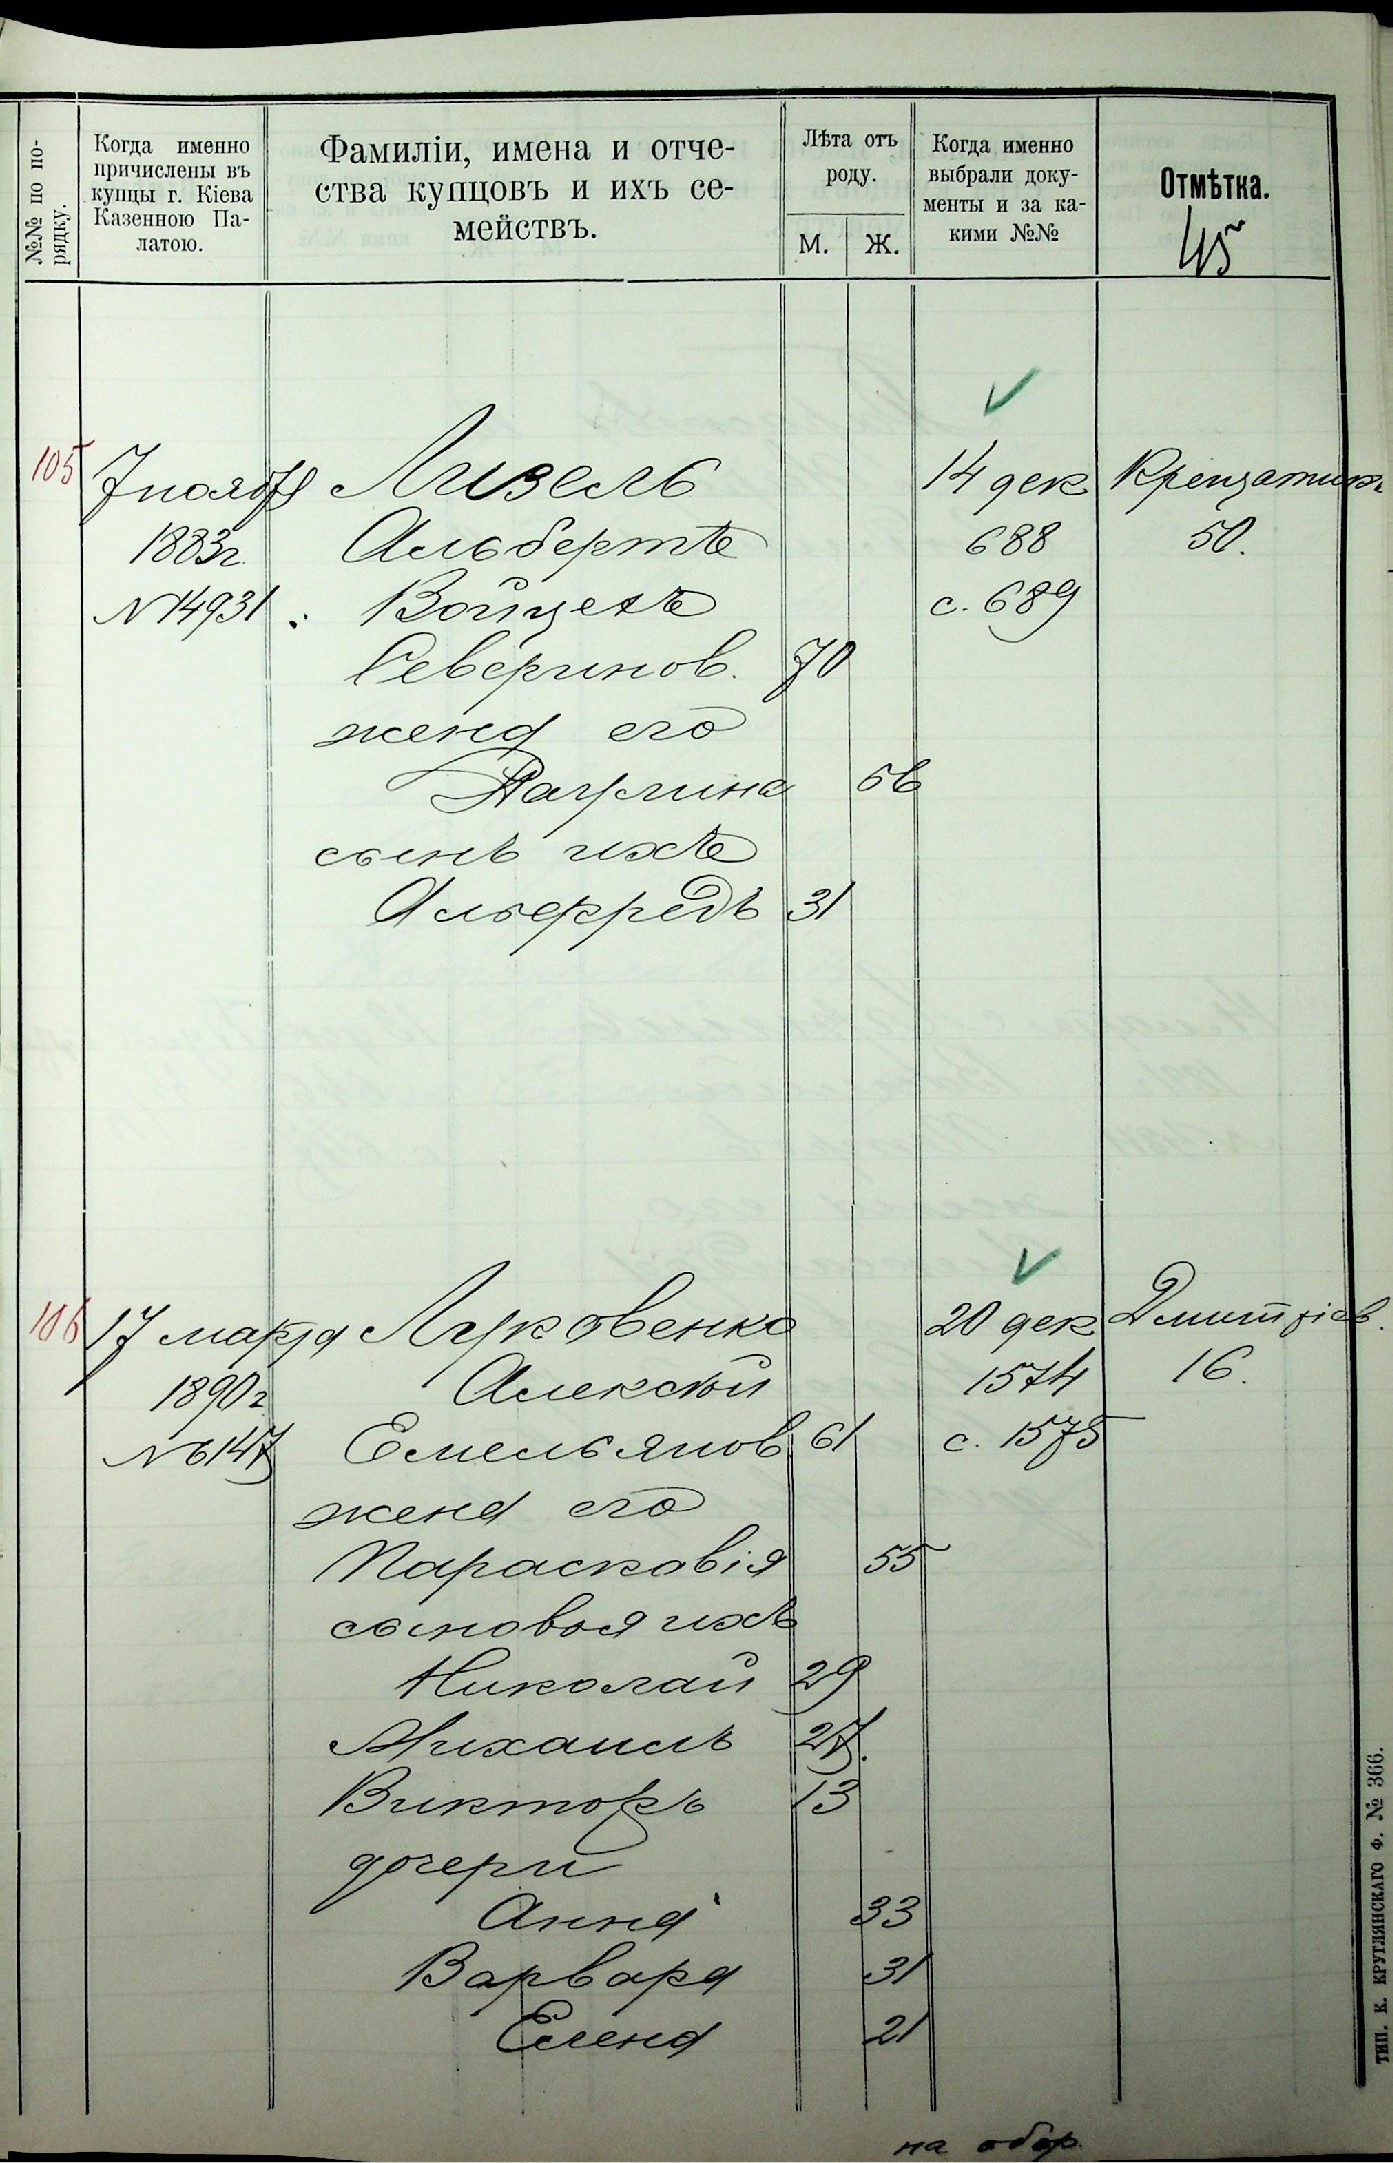 №№ по по-
рядку.
Когда именно
причислены въ
купцы г. Кіева
Казенною Па-
латою.
Фамиліи, имена и отче-
ства купцовъ и ихъ се-
мействъ.
Лѣта отъ
роду.
М. Ж.
Когда именно
выбрали доку-
менты и за ка-
кими №№
Отмѣтка.
45
105 7 ноября Лизель 14 дек Крещатикъ
1883г. Альбертъ 688 50.
№ 14931 Войцехъ с. 689
Северинов. 70
жена его
Паулина 56
сынъ ихъ
Альфредъ 31
106 17 марта Луковенко 20 дек Дмитріев.
1890г Алексѣй 1574 16.
№ 6147 Емельянов. 61 с. 1575
жена его
Парасковія 55
сыновья ихъ
Николай 29
Михаилъ 27.
Викторъ 13
дочери
Анна 33
Варвара 31
Елена 21
на обор.
ТИП. К. КРУГЛЯНСКАГО Ф. № 366.